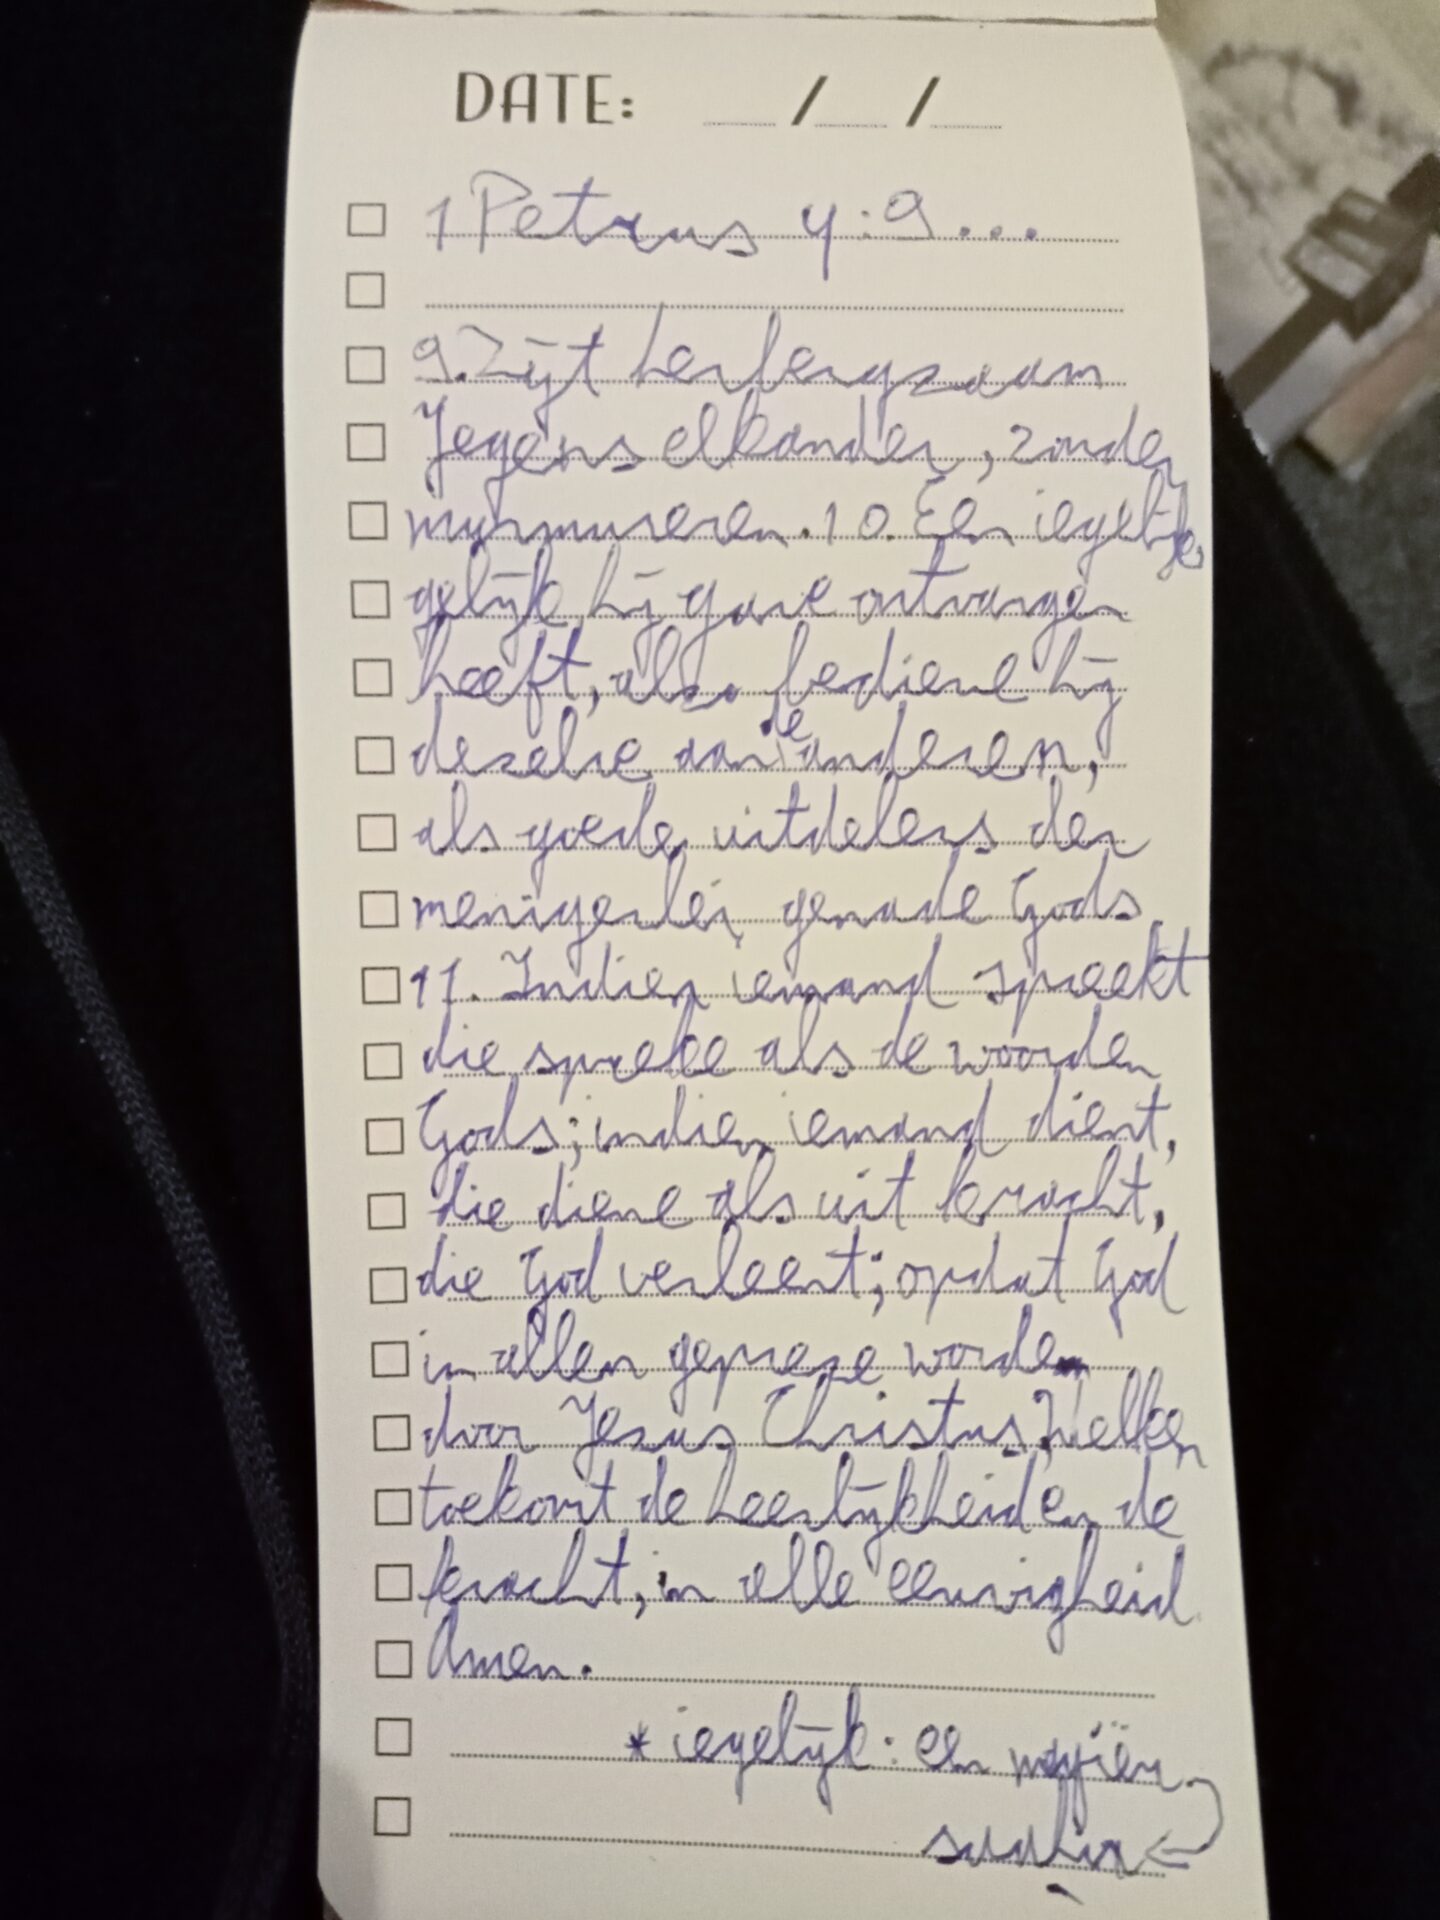 DATE: __/__/__
1 Petrus 4:9...
9. Zijt herbergzaam
Jegens elkander, zonder
murmureren. 10. Een iegelijk
gelijk hij gave ontvangen
heeft, alzo bediene hij
dezelve aan de anderen,
als goede uitdelers der
menigerlei genade Gods
11. Indien iemand spreekt
die spreke als de woorden
Gods; indien iemand dient,
die diene als uit kracht,
die God verleent; opdat God
in allen geprezen worde
door Jezus Christus, Welken
toekomt de heerlijkheid en de
kracht, in alle eeuwigheid
Amen.
* iegelijk: een